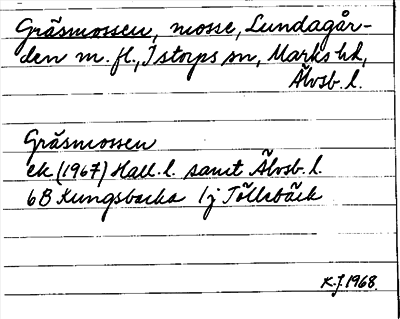 Gräsmossen, mosse, Lundagår-
den m. fl., Istorps sn, Marks hd,
Älvsb. l.
Gräsmossen
ek (1967) Hall. l. samt Älvsb. l.
6B Kungsbacka 1j Töllsbäck
K.J. 1968.